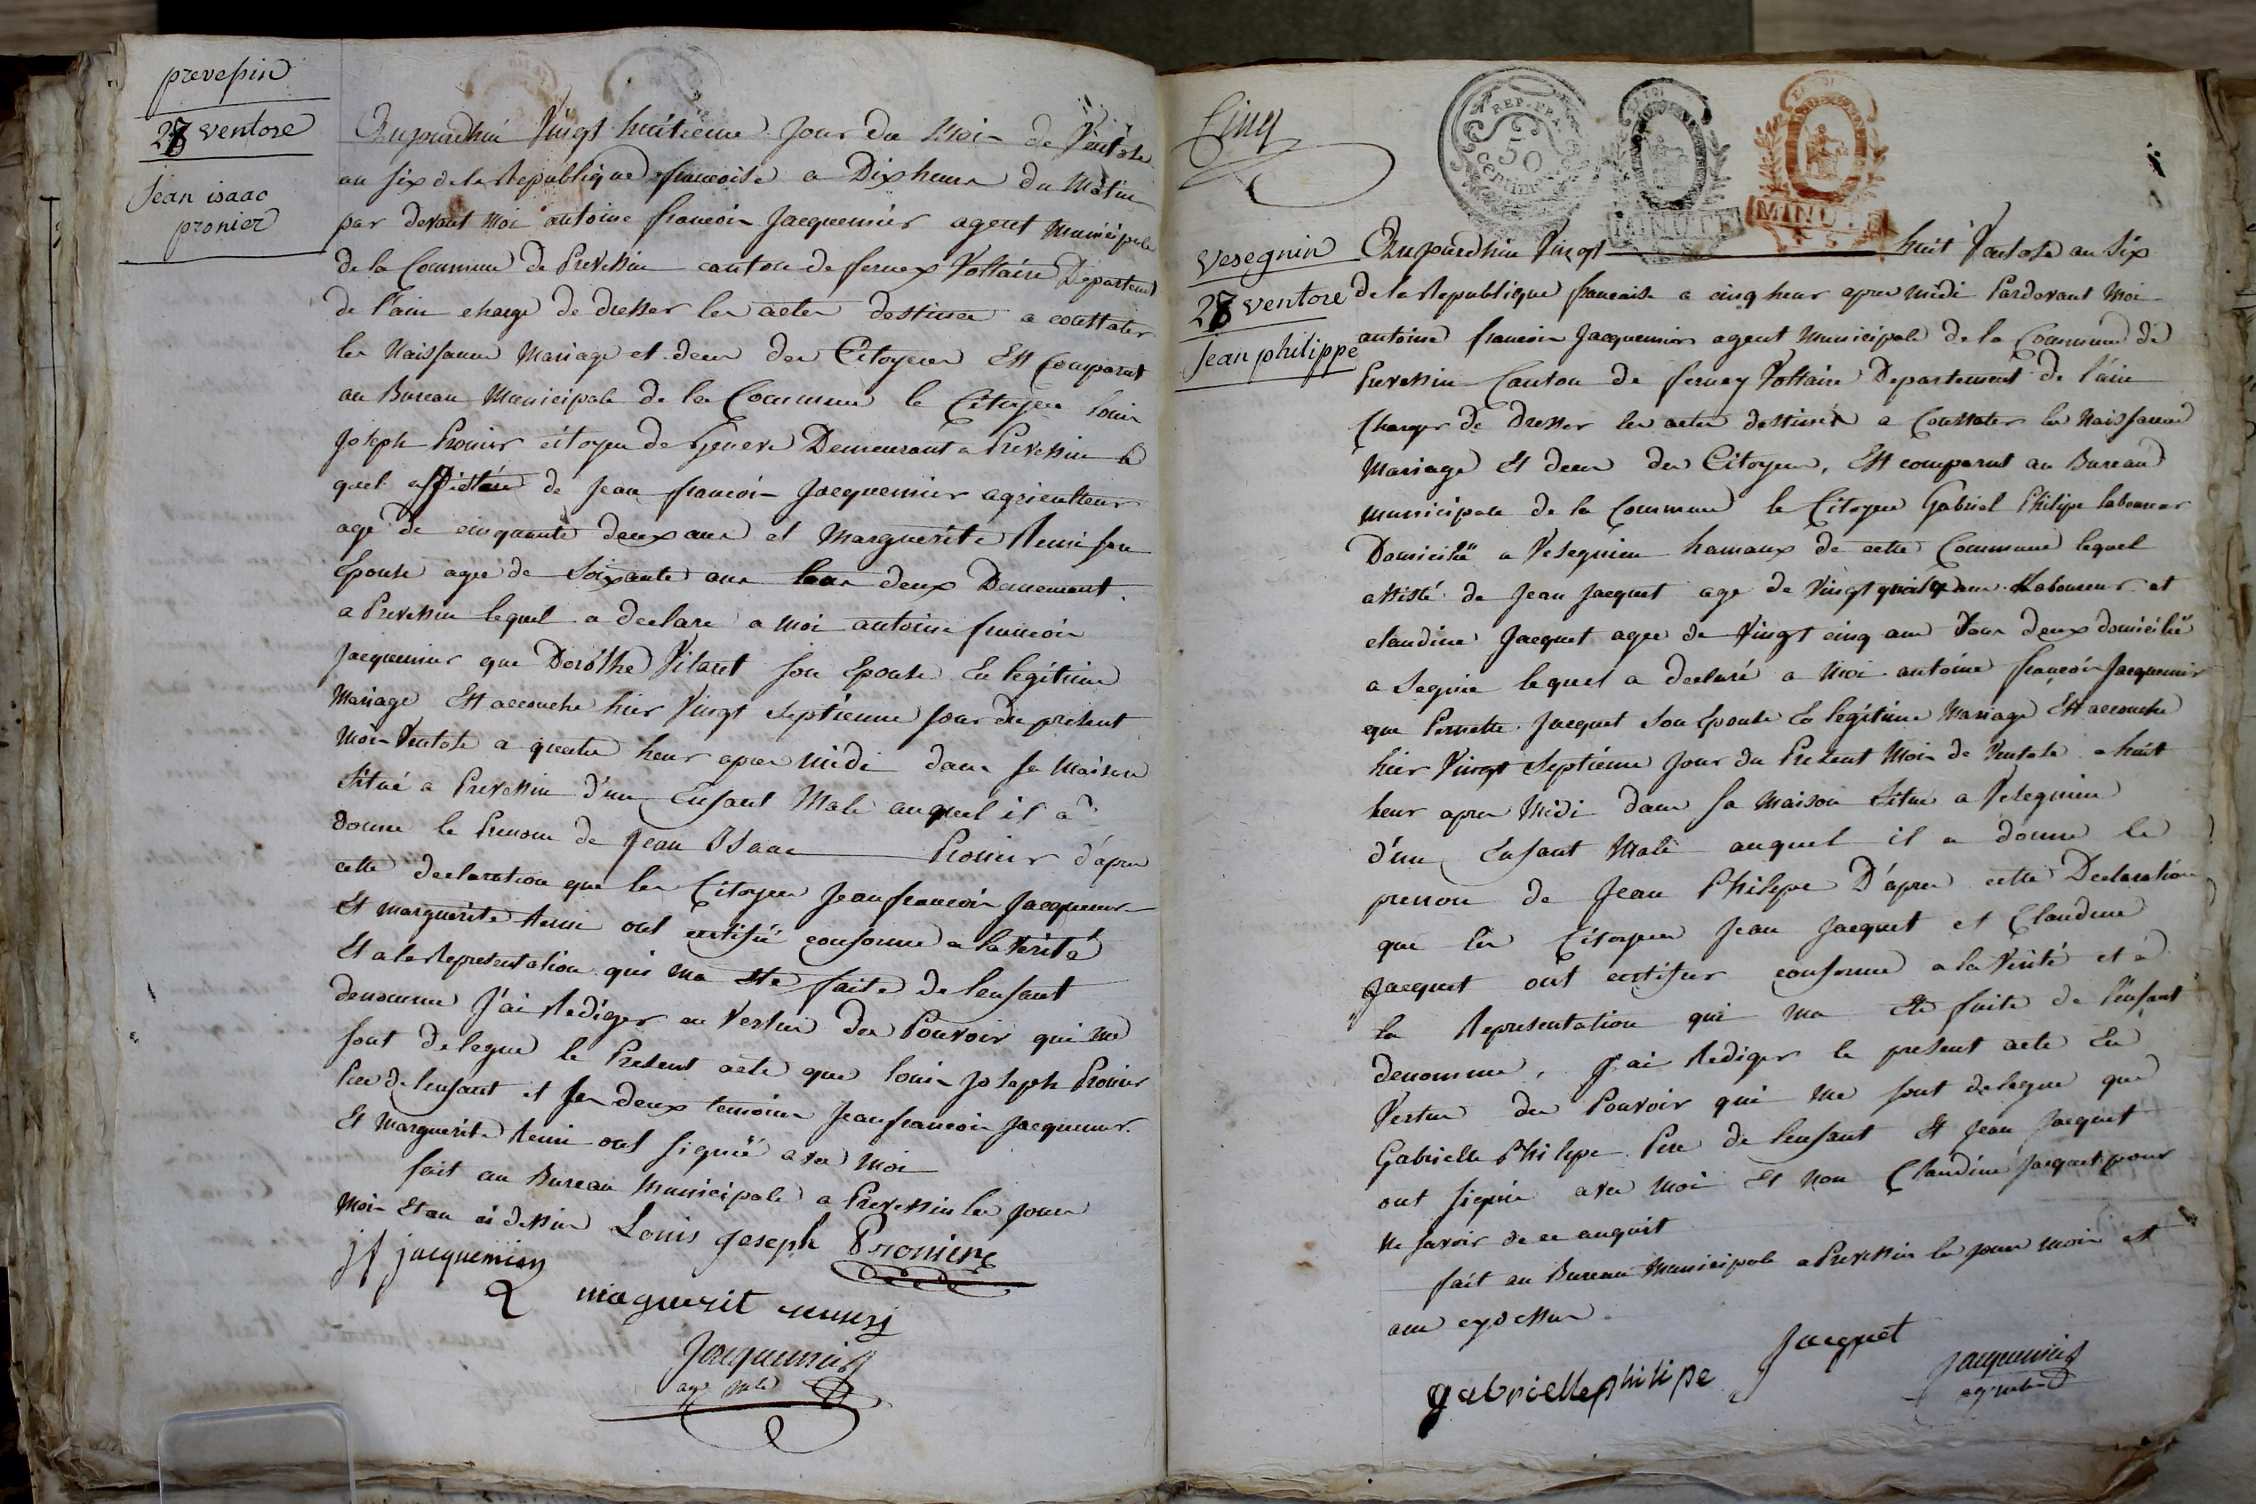 prevessin
28 ventose
Jean isaac
pronier
Aujourdhui Vingt huitieme Jour du Mois de Ventose
an six de la Republique francoise a Dix heure du Matin
par devant Moi antoine francois Jacquemier agent Municipale
de la Commune de Prevessin canton de fernex Voltaire Departement
de l'ain charge de dresser les actes destinee a constater
les Naissance Mariage et deces des Citoyens Est Comparut
au Bureau Municipale de la Commune le Citoyen louis
Joseph Pronier citoyen de Geneve Demeurant a Prevessin le
quel assisté de Jean francois Jacquemier agriculteur
age de cinquante deux ans et Marguerite
Epouse agee de Soixante ans deux
a Prevessin lequel a declare a Moi antoine francois
Jacquemier que Dorothe Vilaret son Epouse En legitime
Mariage Est accouche hier Vingt Septieme Jour du present
Mois Ventose a quatre heur apres midi dans sa Maison
Situé a Prevessin d'un Enfant Male auquel il a
donne le Prenom de Jean Isaac Pronier d'apres
cette declaration que les Citoyen Jean francois Jacquemier
Et marguerite ont certifié conforme a la Verité
Et a la Representation qui ma Ete faite de lenfant
denomme J'ai Rediger en Vertu des Pouvoir qui me
sont delegue le Present acte que louis Joseph Pronier
Pere de lenfant et les deux temoins Jean francois Jacquemier
Et Marguerite ont signié avec Moi
fait au Bureau Municipale a Prevessin les Jour
Mois Et an ci dessus
Louis joseph Pronier
jf jacquemier
maguerit
Jacquemier
ag mle
Cinq
REP. FRA.
50
centimes
MINUTE
MINUTE
vesegnin
28 ventose
Jean philippe
Aujourdhui Vingt huit Ventose an Six
de la Republique francaise a cinq heur apres midi Pardevant Moi
antoine francois Jacquemier agent Municipale de la Commune de
Prevessin Canton de fernex Voltaire Departement de l'ain
Charger de dresser les actes destinés a Constater les Naissance
Mariage Et deces des Citoyen, Est comparut au Bureau
municipale de la Commune le Citoyen Gabriel Philipe laboureur
Domicilié a Vesegnin hamaux de cette Commune lequel
assisté de Jean Jacquet age de Vingt quatre ans Laboureur et
claudine Jacquet agee de Vingt cinq ans tous deux domicilié
a Segnin lequel a declaré a Moi antoine francois Jacquemier
que Pernette Jacquet son Epouse En legitime Mariage Est accouche
hier Vingt Septieme Jour du Present Mois de Ventose a huit
heur apres Midi dans sa Maison Situe a Vesegnin
d'un Enfant Male auquel il a donne le
prenom de Jean Philipe D'apres cette Declaration
que les Citoyen Jean Jacquet et Claudine
Jacquet ont certifier conforme a la Verité et a
la Representation qui ma Ete faite de l'enfant
denomme, J'ai Rediger le present acte En
Vertu des Pouvoir qui me sont delegue que
Gabrielle Philipe Pere de lenfant Et Jean Jacquet
ont signié avec Moi Et Non Claudine Jacquet pour
Ne savoir de ce anquit
fait au Bureau Municipale a Prevessin les Jour mois et
an cydessus
gabrielle philipe
Jacquet
Jacquemier
ag mle